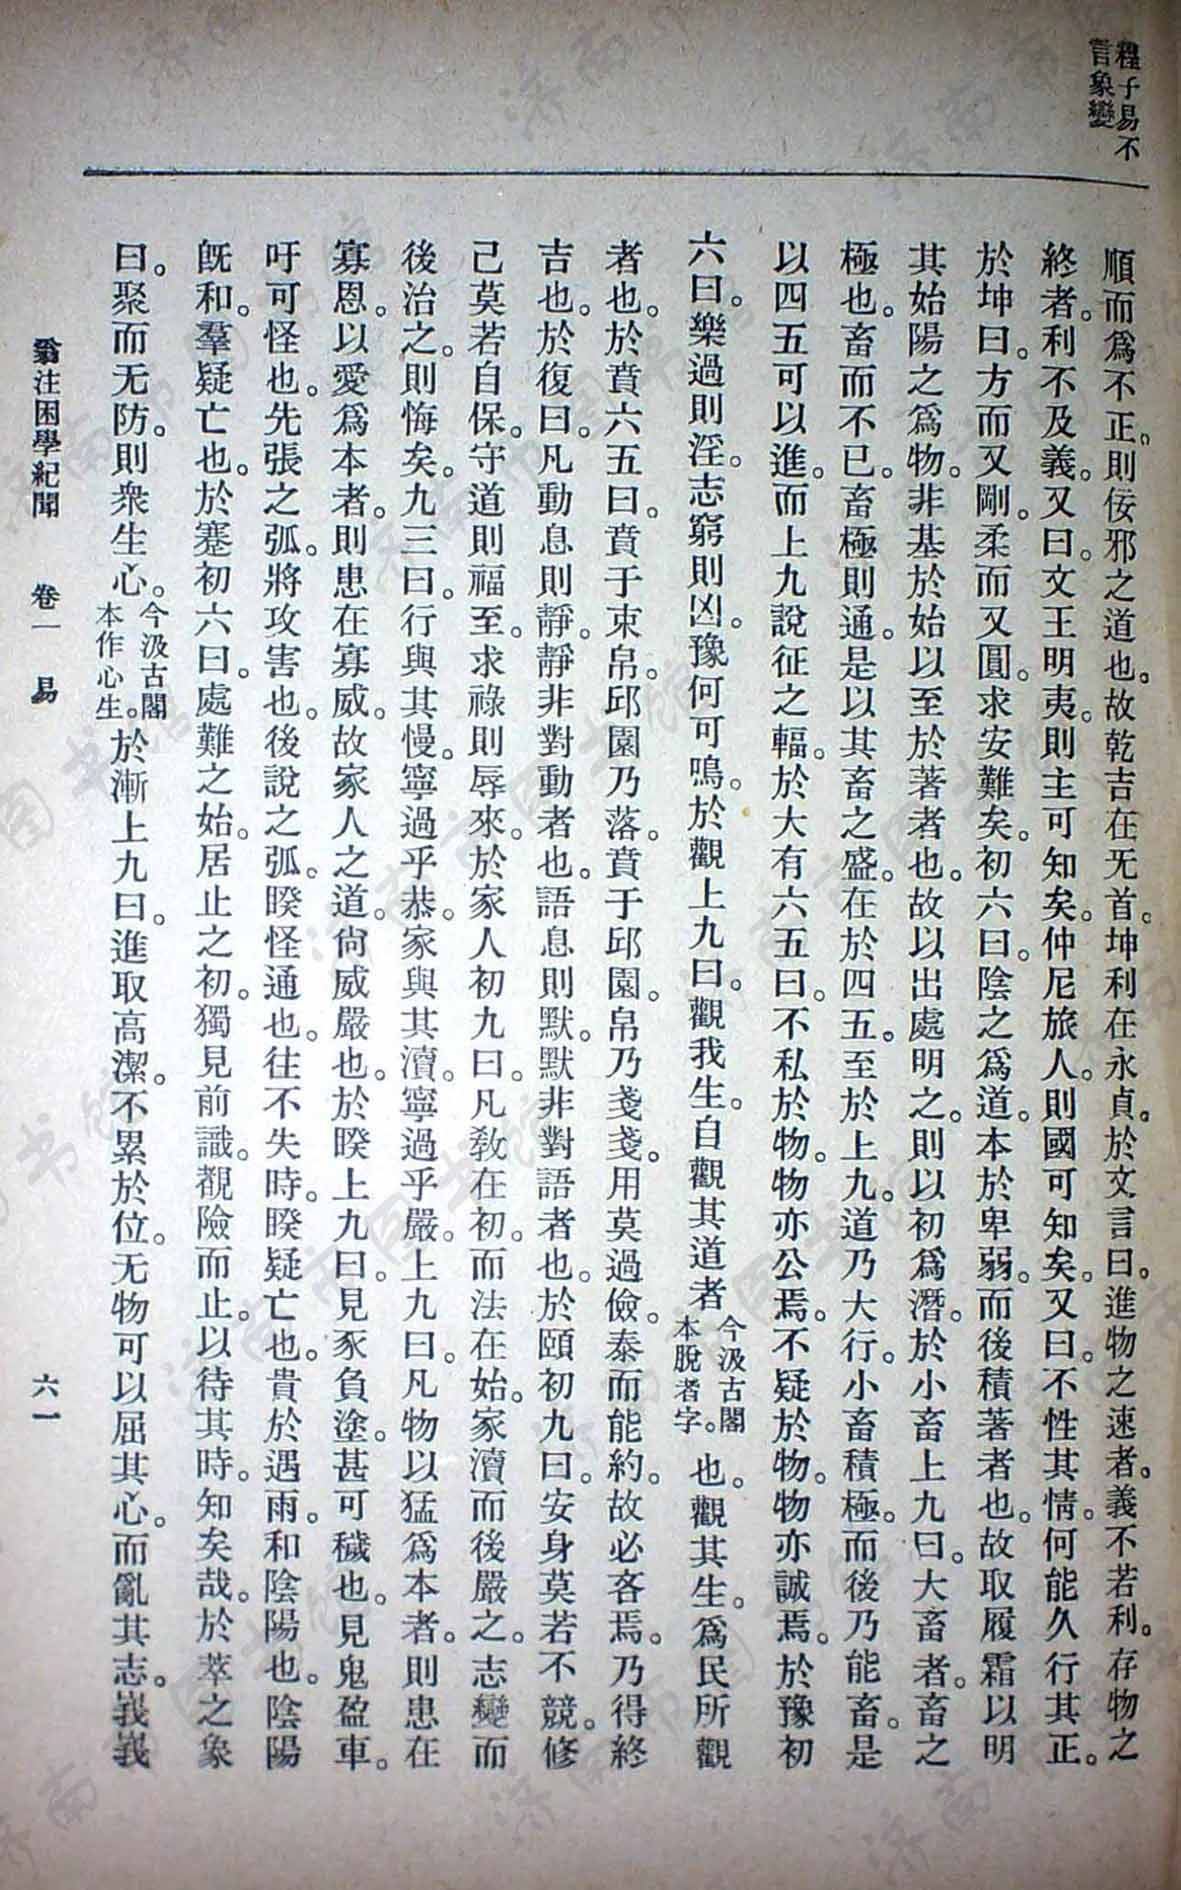 程子易不
言象變
順而爲不正。則佞邪之道也。故乾吉在无首。坤利在永貞。於文言曰。進物之速者。義不若利。存物之
終者。利不及義。又曰。文王明夷。則主可知矣。仲尼旅人。則國可知矣。又曰。不性其情。何能久行其正。
於坤曰。方而又剛。柔而又圓。求安難矣。初六曰。陰之爲道。本於卑弱。而後積著者也。故取履霜以明
其始。陽之爲物。非基於始以至於著者也。故以出處明之。則以初爲潛。於小畜上九曰。大畜者。畜之
極也。畜而不已。畜極則通。是以其畜之盛。在於四五。至於上九。道乃大行。小畜積極。而後乃能畜。是
以四五可以進。而上九說征之輻。於大有六五曰。不私於物。物亦公焉。不疑於物。物亦誠焉。於豫初
六曰。樂過則淫。志窮則凶。豫何可鳴。於觀上九曰。觀我生。自觀其道者
今汲古閣
本脫者字。
也。觀其生。爲民所觀
者也。於賁六五曰。賁于束帛。邱園乃落。賁于邱園。帛乃戔戔。用莫過儉。泰而能約。故必吝焉。乃得終
吉也。於復曰。凡動息則靜。靜非對動者也。語息則默。默非對語者也。於頤初九曰。安身莫若不競。修
己莫若自保。守道則福至。求祿則辱來。於家人初九曰。凡敎在初。而法在始。家瀆而後嚴之。志變而
後治之。則悔矣。九三曰。行與其慢。寧過乎恭。家與其瀆。寧過乎嚴。上九曰。凡物以猛爲本者。則患在
寡恩。以愛爲本者。則患在寡威。故家人之道。尙威嚴也。於睽上九曰。見豕負塗。甚可穢也。見鬼盈車。
吁可怪也。先張之弧。將攻害也。後說之弧。睽怪通也。往不失時。睽疑亡也。貴於遇雨。和陰陽也。陰陽
旣和。羣疑亡也。於蹇初六曰。處難之始。居止之初。獨見前識。覩險而止。以待其時。知矣哉。於萃之象
曰。聚而无防。則衆生心。
今汲古閣
本作心生。
於漸上九曰。進取高潔。不累於位。无物可以屈其心。而亂其志。峩峩
翁注困學紀聞 卷一 易 六一